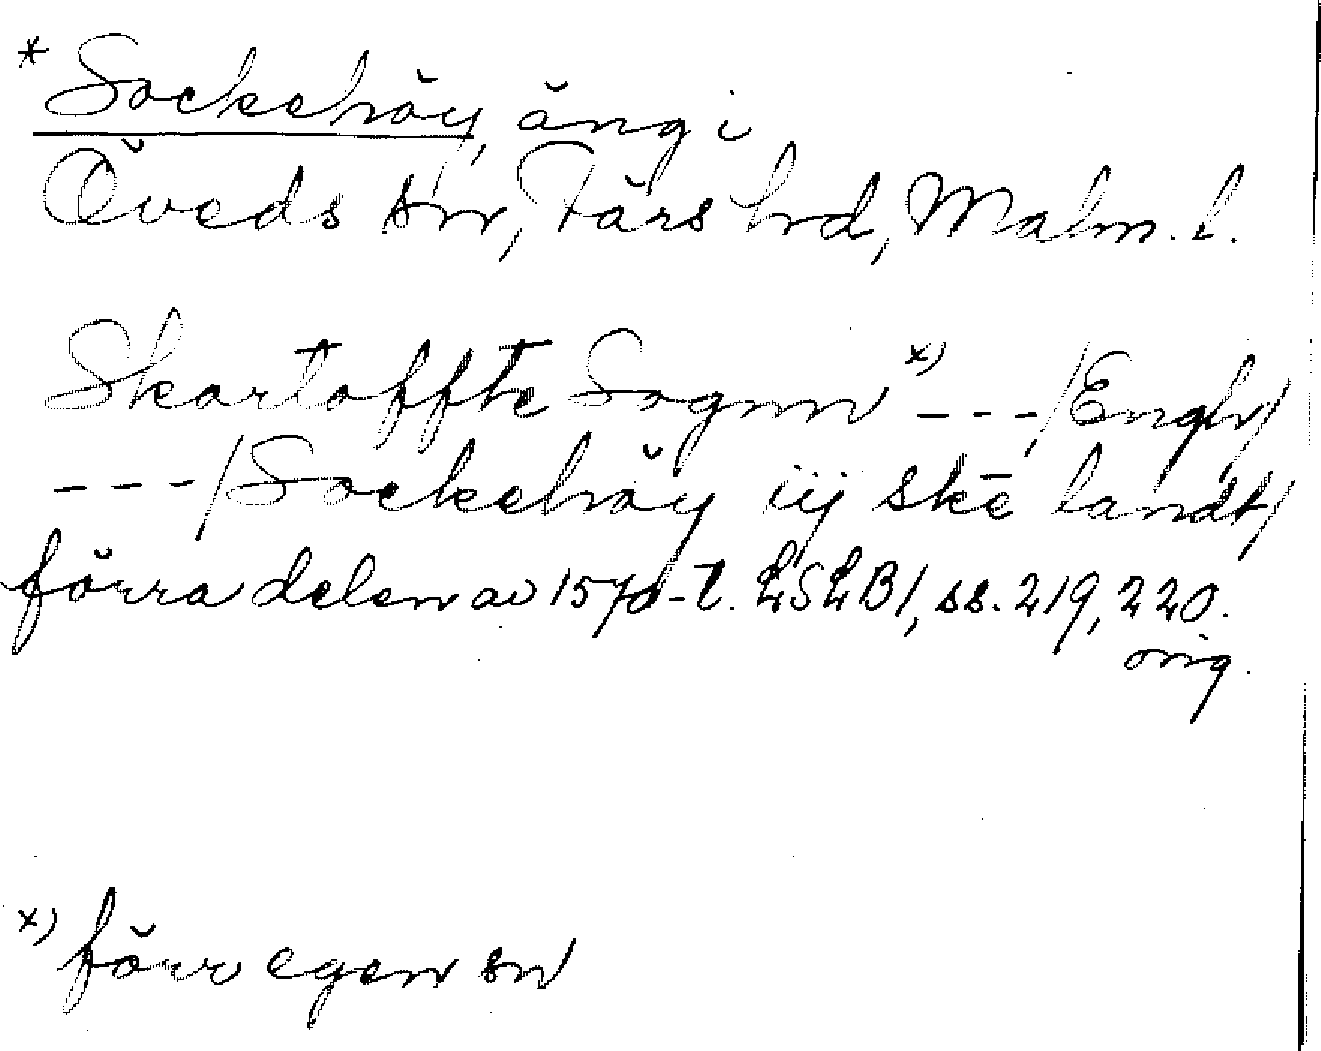 * Sockehöy, äng i
Öveds sn, Färs hd, Malm. l.
Skartoffte Sognn x) ---/Engh/
---/Sockehöy iij skē landt/
förra delen av 1570-t. LSLB1, ss. 219, 220.
orig.
x) förr egen sn